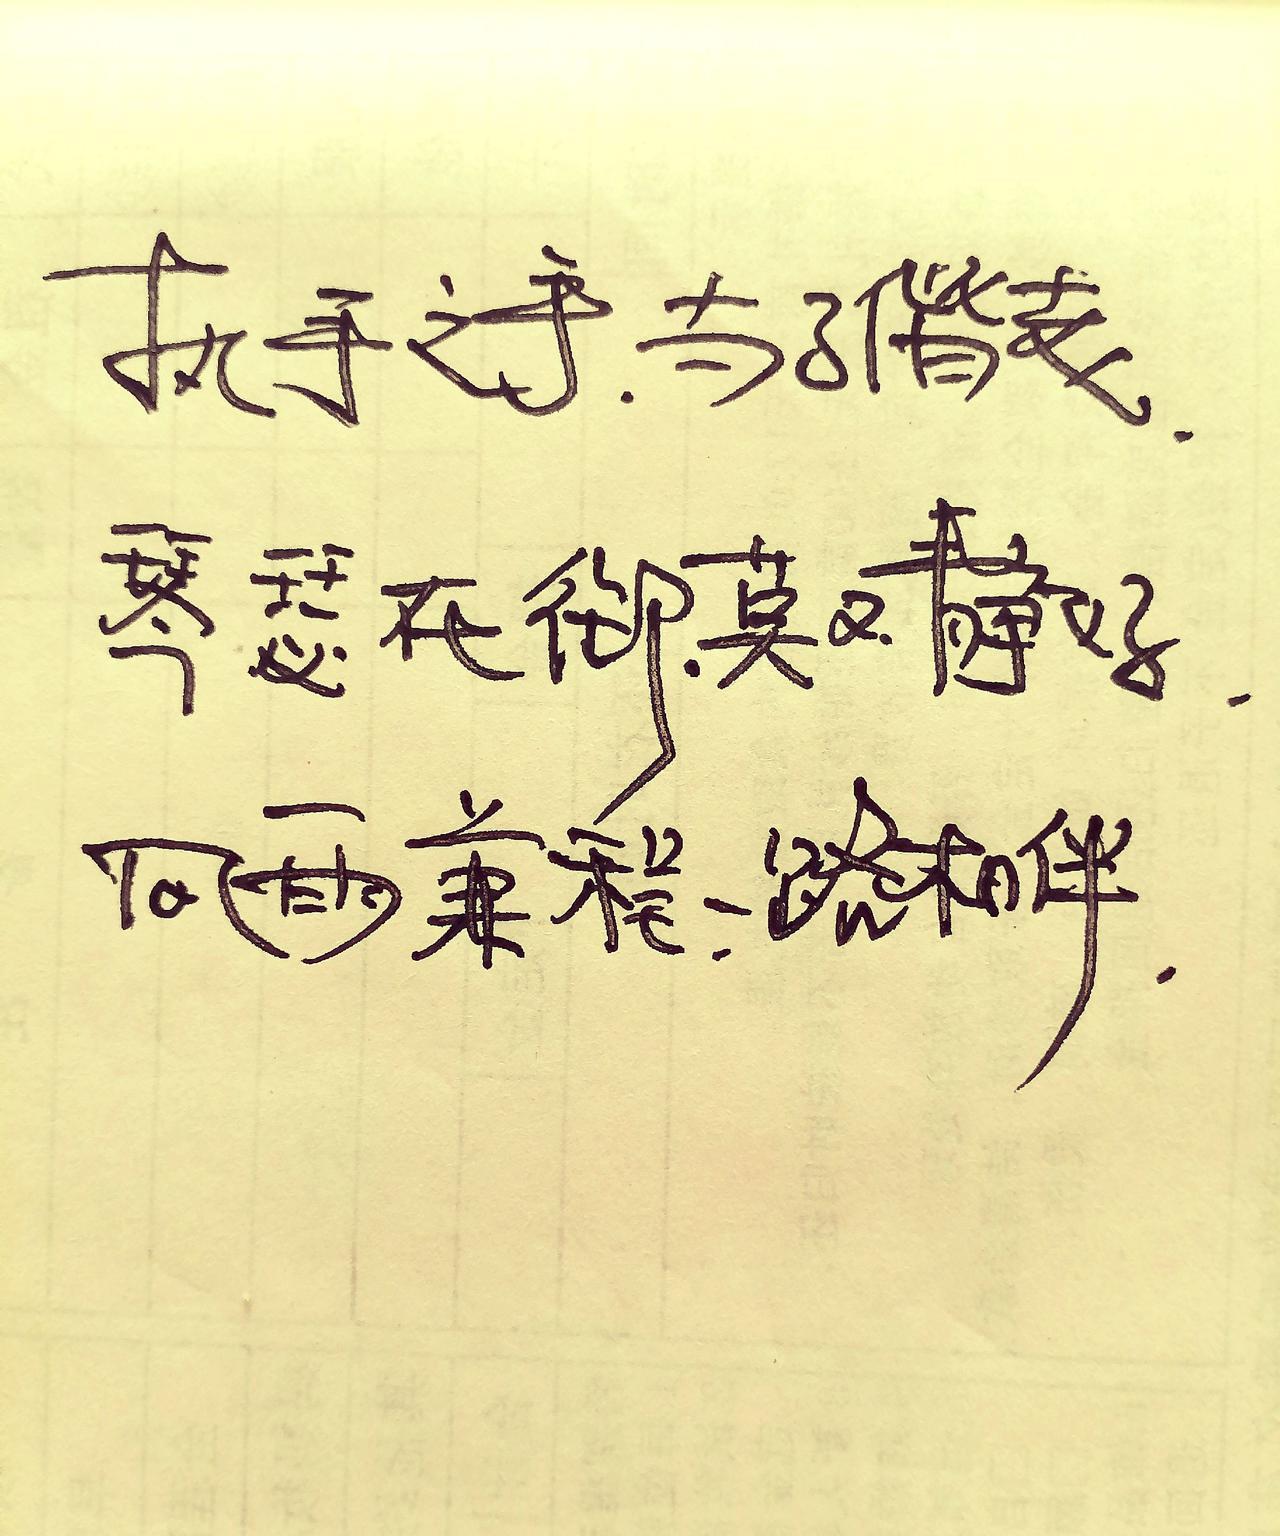 执手之手.与子偕老.
琴瑟在御.莫不静好.
风雨兼程.一路相伴.